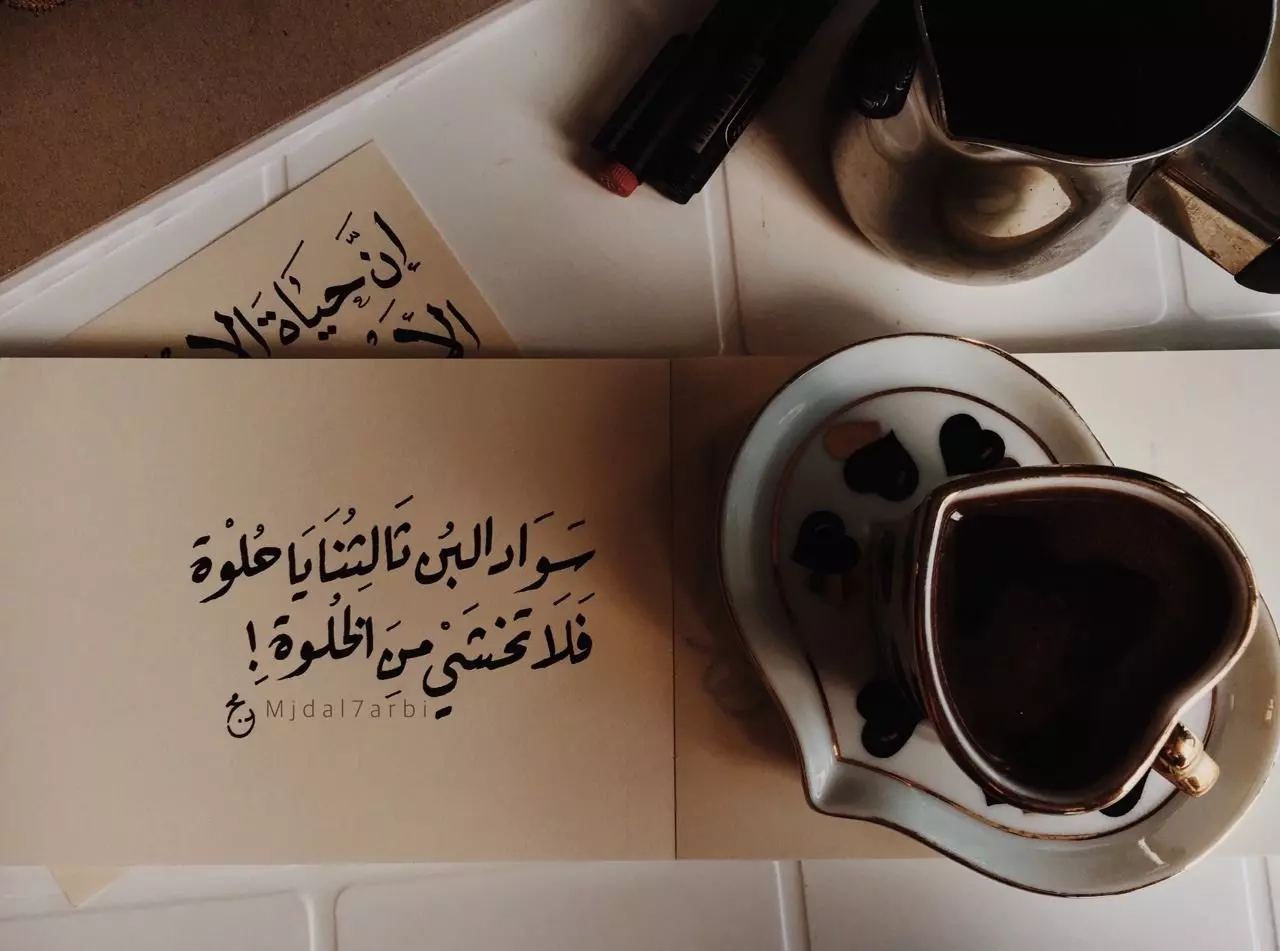 إنَّ حيَاةَ
سَوَاد البُن ثَالِثُنَا يَا حُلْوة
فَلَا تخشَيْ مِنَ الخلُوة !
Mjdal7arbi